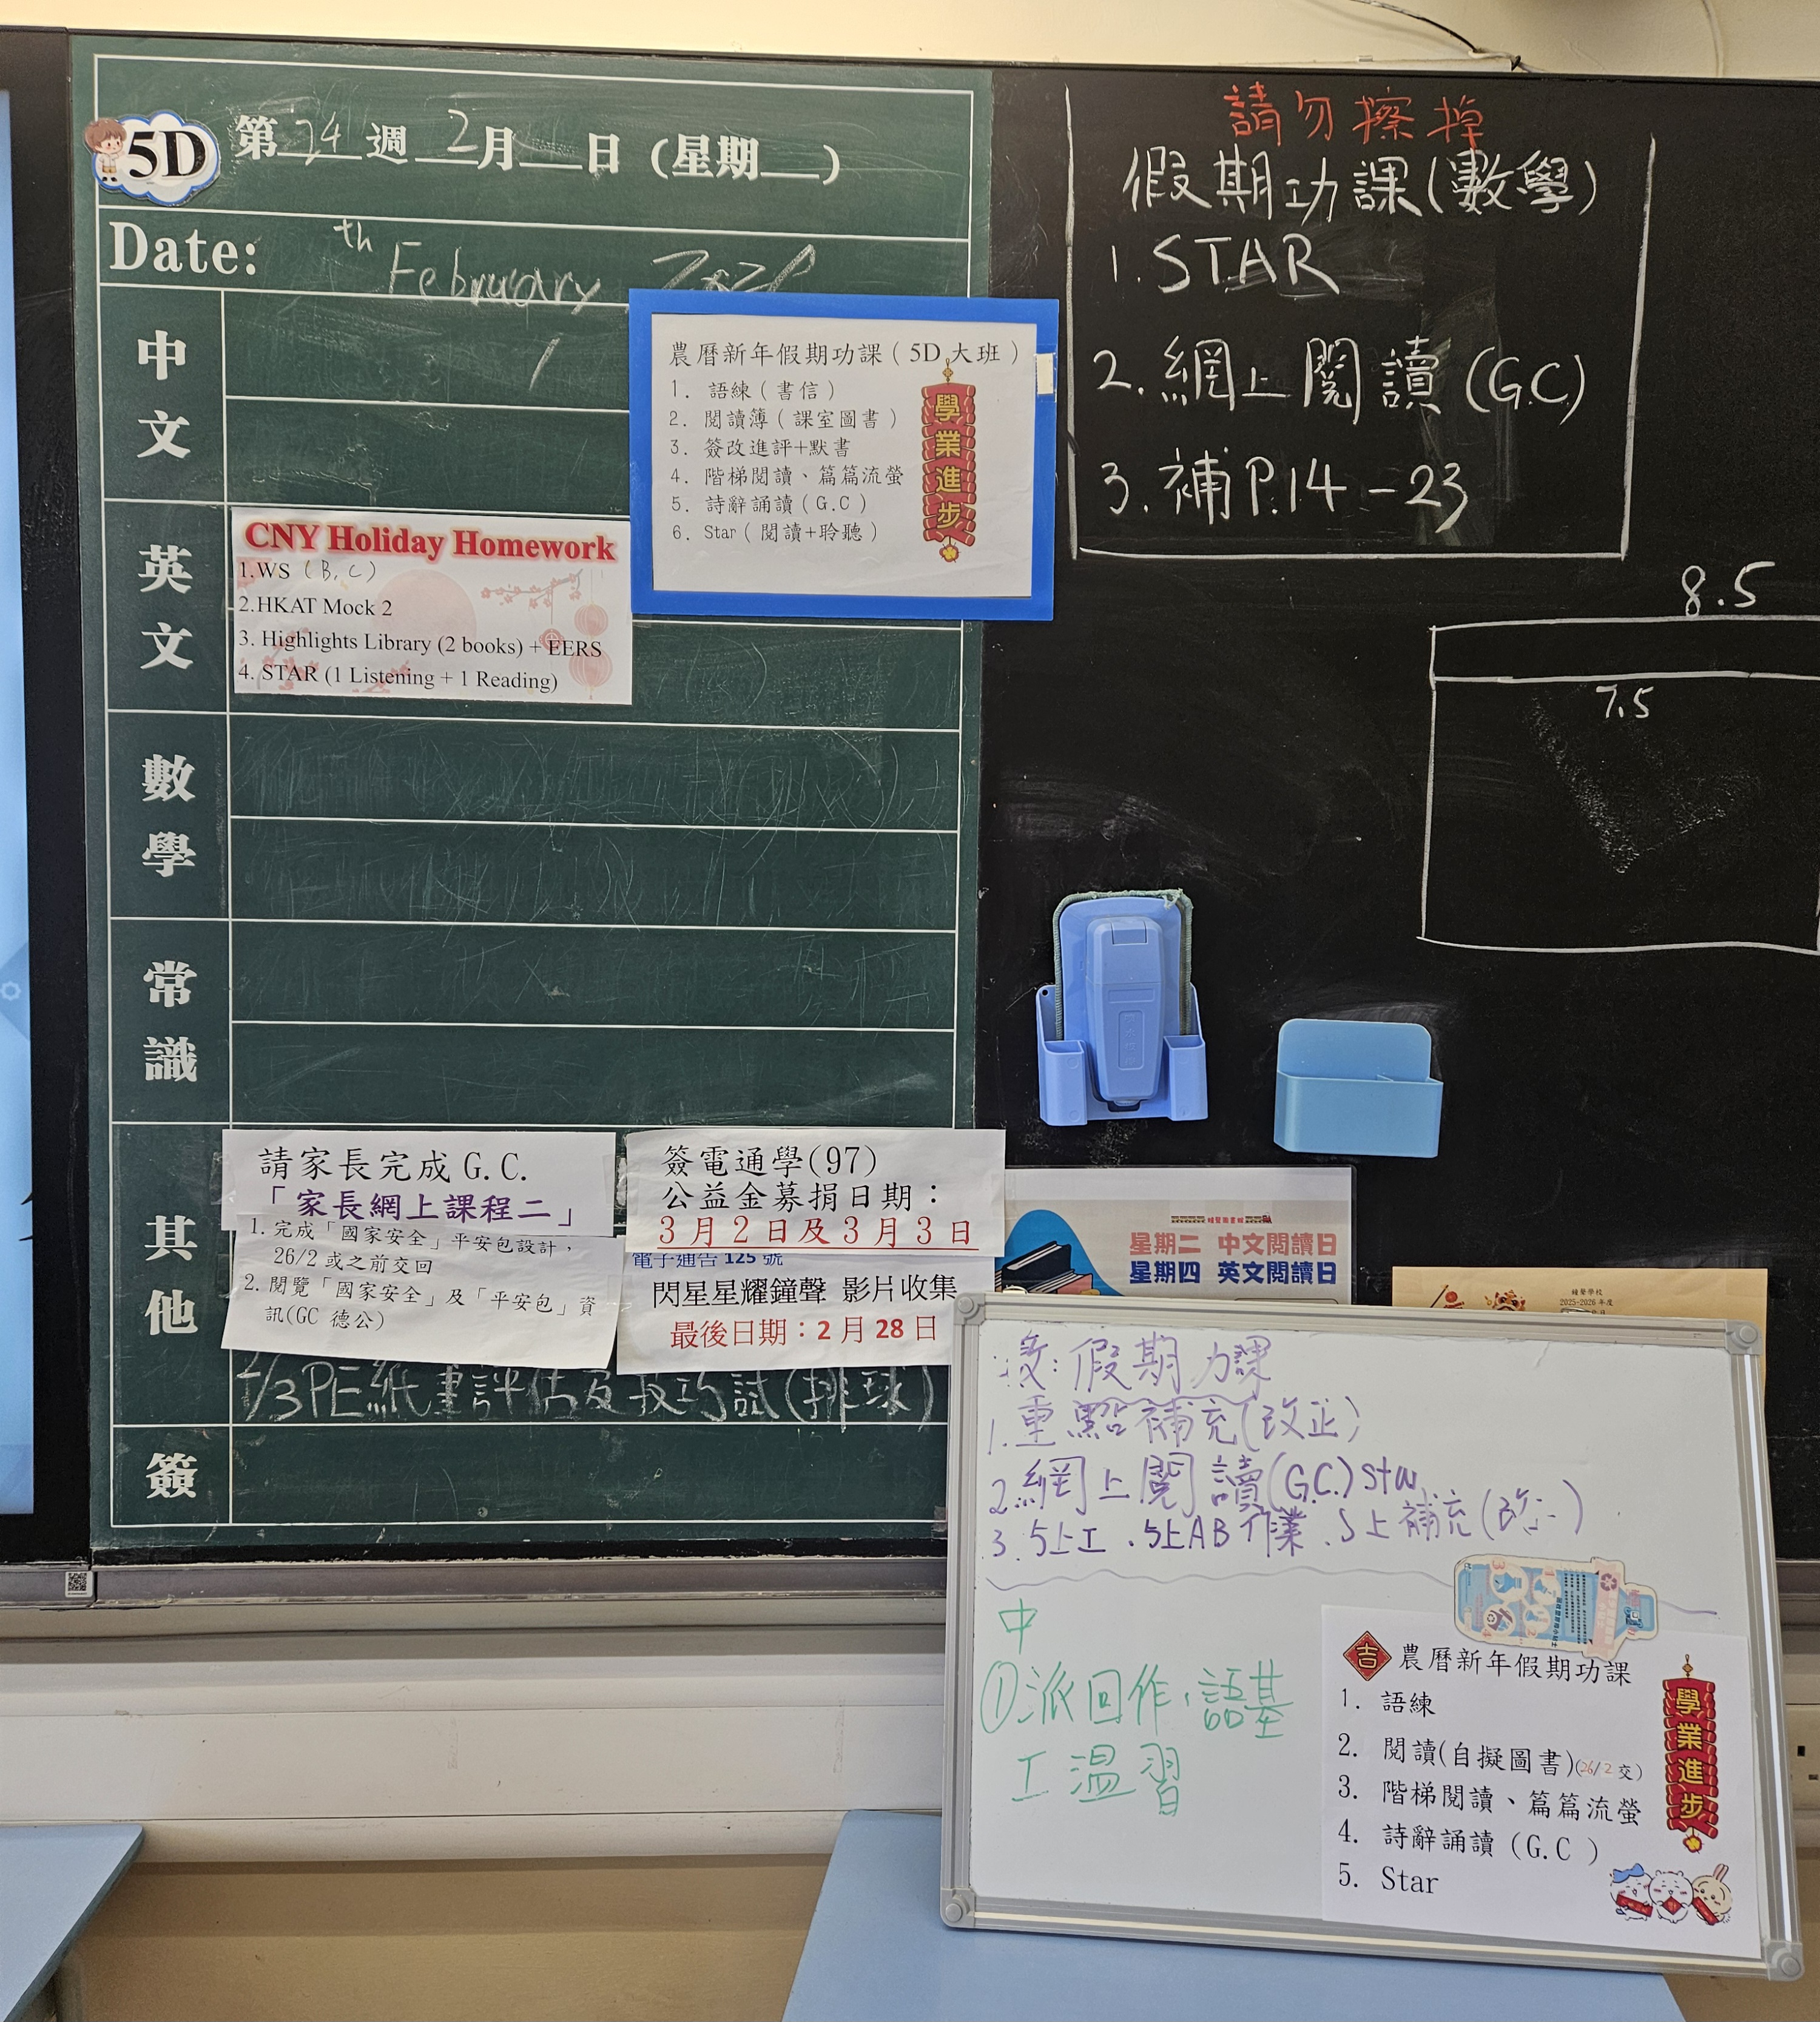 5D
第24週2月__日(星期__)
Date: th February
中文
農曆新年假期功課(5D大班)
1. 語練(書信)
2. 閱讀簿(課室圖書)
3. 簽改進評+默書
4. 階梯閱讀、篇篇流螢
5. 詩辭誦讀(G.C)
6. Star(閱讀+聆聽)
學業進步
英文
CNY Holiday Homework
1.WS (B, C)
2.HKAT Mock 2
3. Highlights Library (2 books) + EERS
4. STAR (1 Listening + 1 Reading)
數學
常識
其他
請家長完成 G.C.
「家長網上課程二」
1. 完成「國家安全」平安包設計,
26/2 或之前交回
2. 閱覽「國家安全」及「平安包」資
訊(GC 德公)
簽電通學(97)
公益金募捐日期：
3月2日及3月3日
電子通告 125 號
閃星星耀鐘聲 影片收集
最後日期：2 月 28 日
/3 PE紙筆評估及技巧試(排球)
簽
請勿擦掉
假期功課(數學)
1. STAR
2. 網上閱讀(G.C)
3. 補P.14-23
8.5
7.5
星期二 中文閱讀日
星期四 英文閱讀日
鐘聲學校
2025-2026 年度
假期功課
1. 重點補充(改正)
2. 網上閱讀(G.C.) Star
3. 5上工 . 5上AB作業 . 5上補充
中
①派回作,語基
工溫習
吉
農曆新年假期功課
1. 語練
2. 閱讀(自擬圖書)(26/2交)
3. 階梯閱讀、篇篇流螢
4. 詩辭誦讀(G.C )
5. Star
學業進步